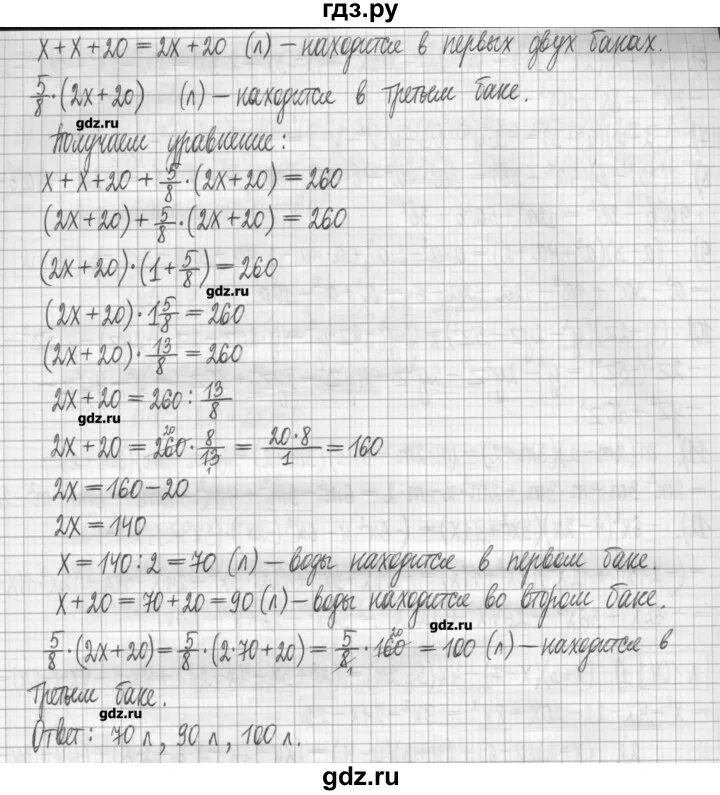 гдз.ру
x + x + 20 = 2x + 20 (л) – находится в первых двух баках.
5/8 · (2x + 20) (л) – находится в третьем баке.
gdz.ru
Получаем уравнение:
x + x + 20 + 5/8 · (2x + 20) = 260
(2x + 20) + 5/8 · (2x + 20) = 260
(2x + 20) · (1 + 5/8) = 260
gdz.ru
(2x + 20) · 1 5/8 = 260
(2x + 20) · 13/8 = 260
2x + 20 = 260 : 13/8
gdz.ru
2x + 20 = 260 20 · 8/13 1 = 20·8/1 = 160
2x = 160 – 20
2x = 140
x = 140 : 2 = 70 (л) – воды находится в первом баке.
x + 20 = 70 + 20 = 90 (л) – воды находится во втором баке.
gdz.ru
5/8 · (2x + 20) = 5/8 · (2·70 + 20) = 5/8 1 · 160 20 = 100 (л) – находится в
третьем баке.
gdz.ru
Ответ: 70 л, 90 л, 100 л.
gdz.ru